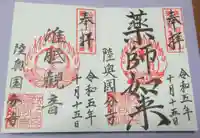 奉拝
薬師如来
陸奥国分寺
令和五年
十月十五日
奉拝
唯胝観音
陸奥国分寺
令和五年
十月十五日